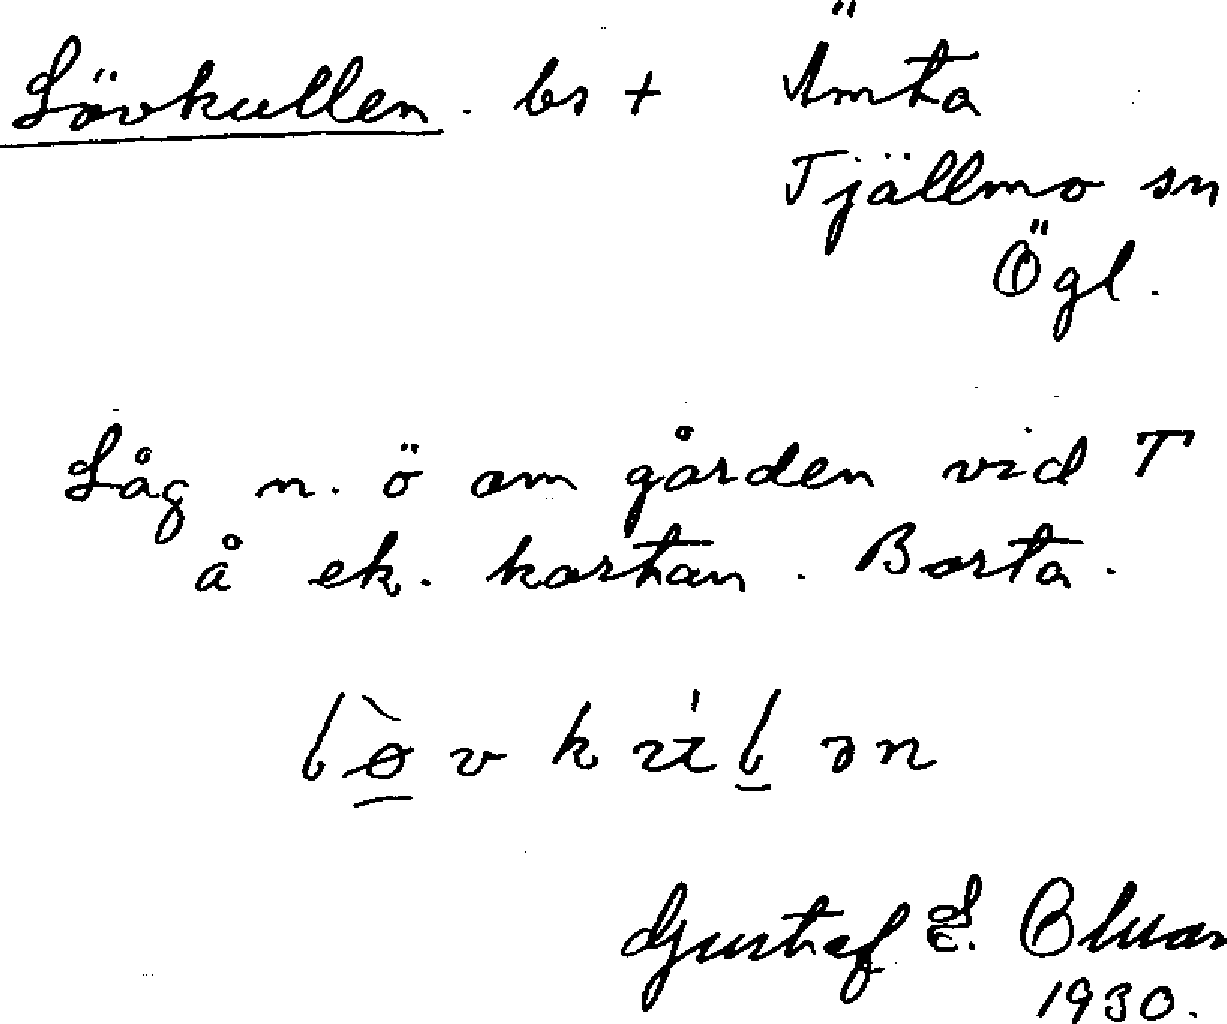 Lövkullen. bs + Ämta
Tjällmo sn
Ögl.
Låg n. ö om gården vid T
å ek. kartan. Borta.
Gustaf E.
1930.